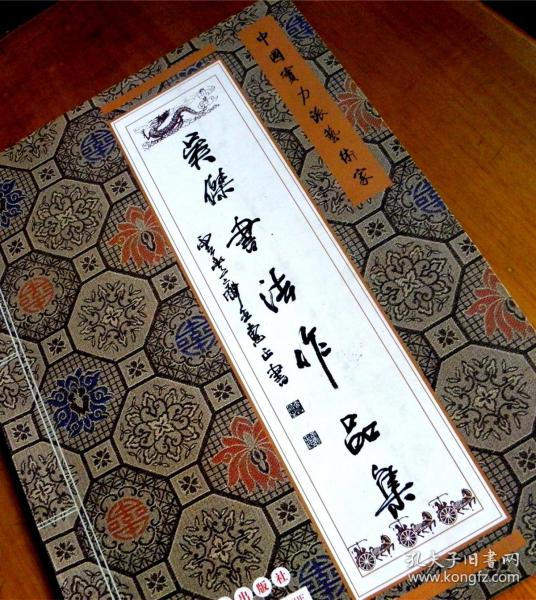 中國實力派藝術家
吳傑書法作品集
出版社
孔夫子旧書网
www.kongfz.com